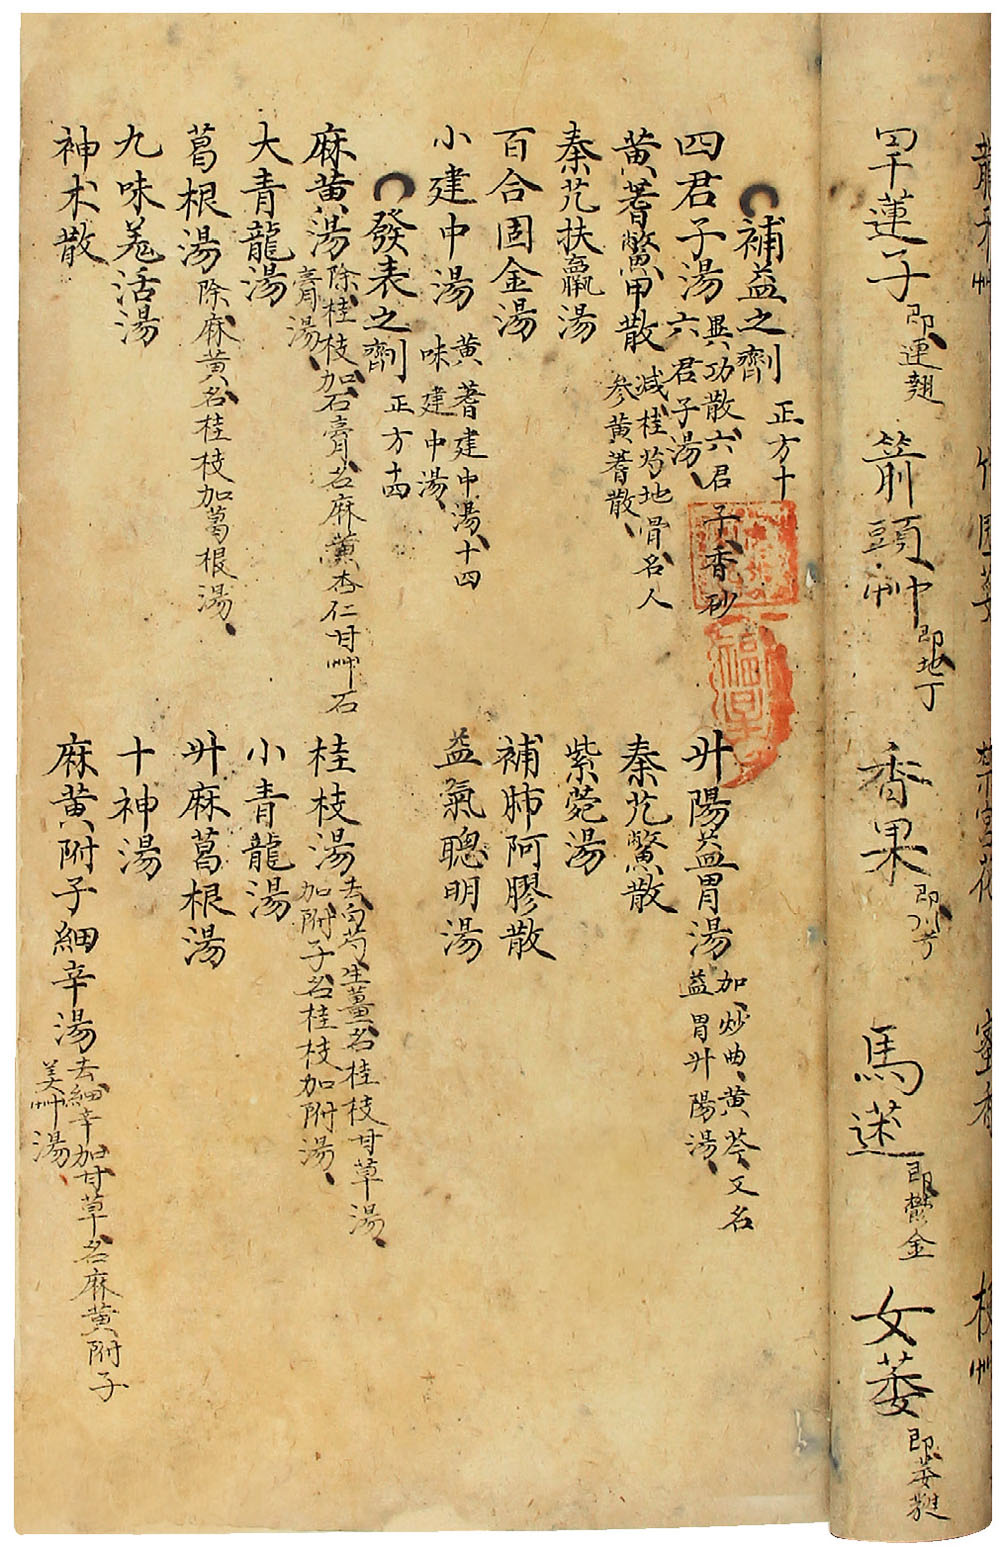 旱蓮子 即連翹 箭頭艸 即地丁 香果 即川芎 馬蒁 即鬱金 女萎 即萎蕤
補益之劑 正方十
四君子湯 異功散、六君子、香砂六君子湯、 升陽益胃湯 加炒曲、黄芩、又名益胃升陽湯、
黄蓍鱉甲散 减桂芍地骨名人参黄蓍散、 秦艽鱉散
秦艽扶羸湯 紫菀湯
百合固金湯 補肺阿膠散
小建中湯 黄蓍建中湯、十四味建中湯、 益氣聰明湯
發表之劑 正方十四
麻黄湯 除桂枝加石膏名麻黄杏仁甘艸石膏湯、 桂枝湯 去白芍、生薑名桂枝甘草湯、加附子名桂枝加附湯、
大青龍湯 小青龍湯
葛根湯 除麻黄名桂枝加葛根湯、 升麻葛根湯
九味羌活湯 十神湯
神术散 麻黄附子細辛湯 去細辛加甘草名麻黄附子美艸湯、